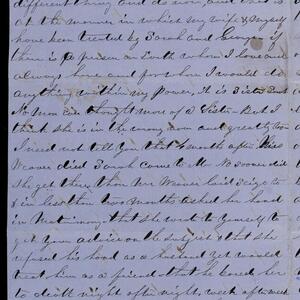 different thing and do now, and this is
at the manner in which my wife & myself
have been treated by Sarah and George if
there is a person on Earth whom I love and
always have and for whom I would do
anything within my power, it is Sister
No Man Ever thought more of a Sister But I
think she is in the wrong now and greatly too
I need not tell you that months after
Weaver died Sarah come to M No sooner did
She get there then Mr Weaver laid seize to
& in less than two months asked her hand
in Matrimony. that she wrote to yourself to
get your advice on the subject & that she
refused his hand as a husband yet would
treat him as a friend. that he bored her
to death night after night, week after week